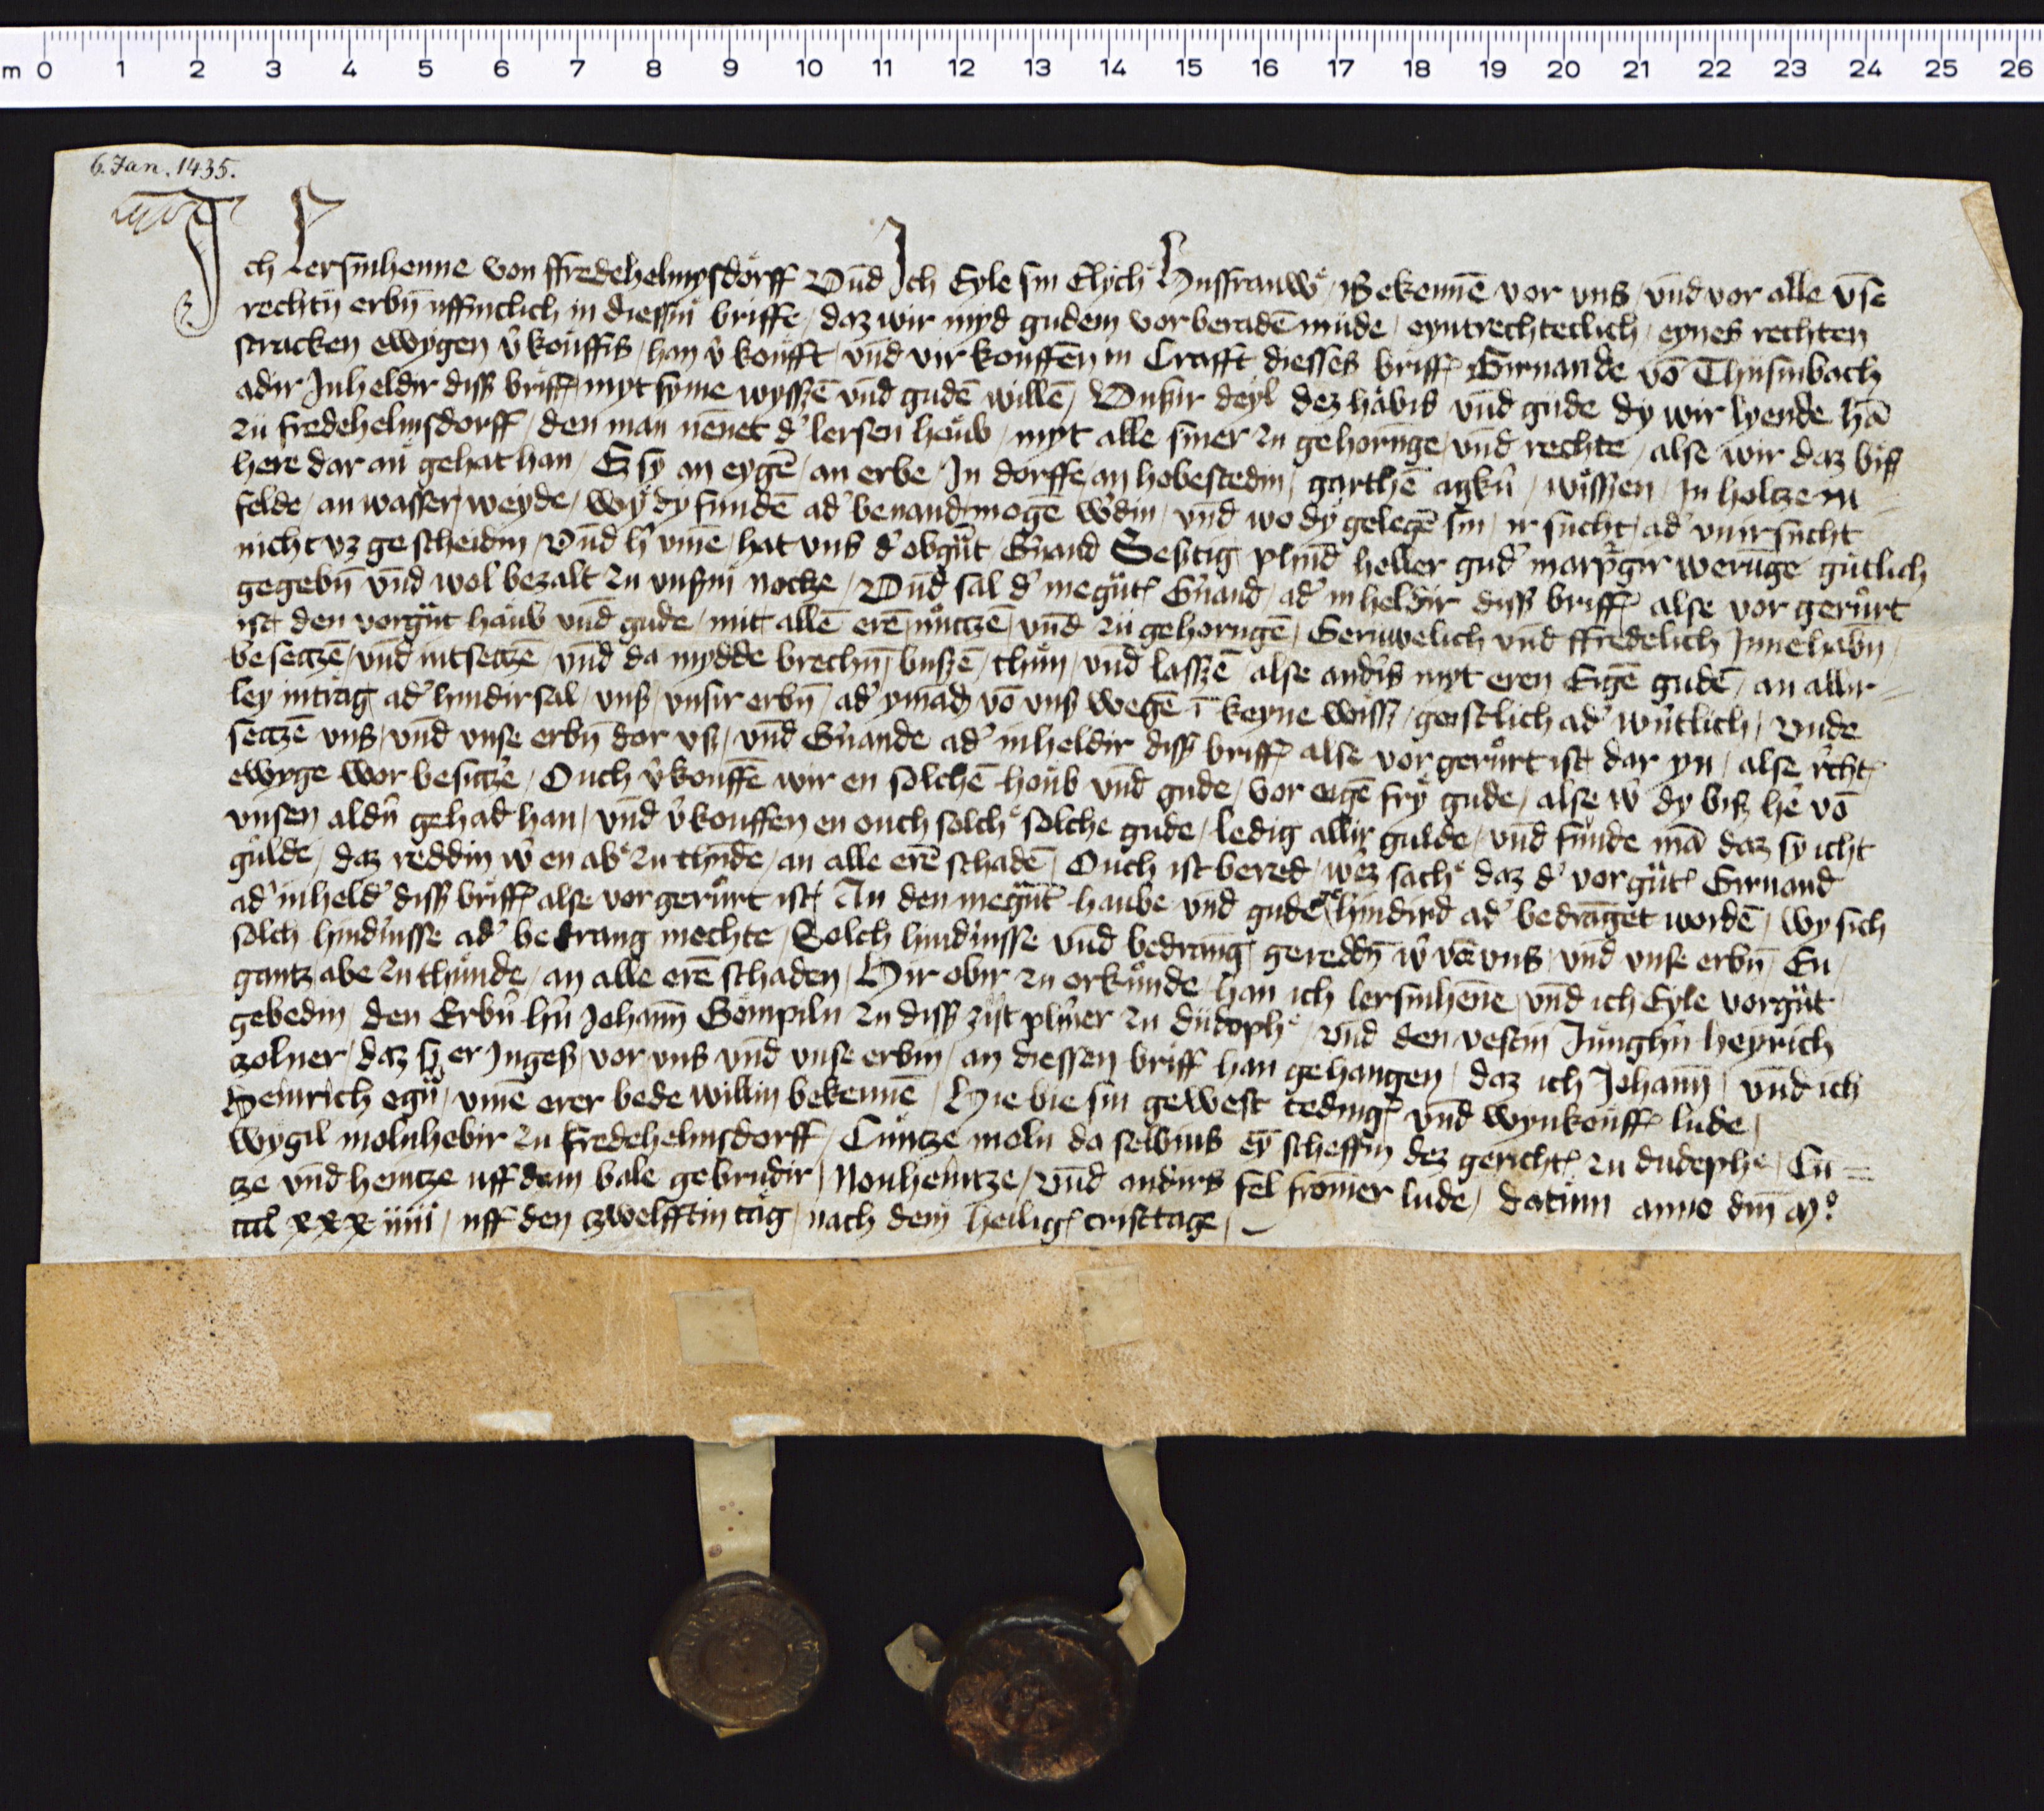 m 0 1 2 3 4 5 6 7 8 9 10 11 12 13 14 15 16 17 18 19 20 21 22 23 24 25 26
6. Jan. 1435.
Ich Lersinhenne von ffredehelmysdorff Vnd Ich Eyle sin Elych Husfrauwe / Bekennē vor vns / vnd vor alle vnse
rechtn̄ erbn̄ uffintlich in diessm briffe / daz wir myd gudem vorberadē mude / eyntrechteclich / eynes rechten
stracken ewygen v̾kouffis / han v̾koufft / vnd virkouffen in Crafft diesses briff Girnande vō Elnsinbach
adir Inheldir diss briff / myt syme wyssē vnd gudē willē / Vnsir deyl dez habis vnd gude dy wir lyende hā
zu fredehelmsdorff / den man nenet d̾ lersen houb / myt alle siner zu gehorūge / vnd rechte / alse wir daz biss
here dar an gehat han / Es sy an eygē / an erbe / In dorffe an hobestedin / garthē agkir / wissen / In holtze in
felde / an wasser / weyde / wy dy fundē ad̾ benand mogē w̾din / vnd wo dy gelegē sin / ir sucht / ad̾ vnirsucht
nicht vz gescheidin / Vnd h̾ vmē / hat vns d̾ obgnt̄ G̾nand Sestig phund heller gud̾ marpgir werūge gutlich
gegebn̄ vnd wol bezalt zu vnsm nocze / Vnd sal d̾ megnt̄ G̾nand / ad̾ inheldir diss briff alse vor gerurt
ist den vorgnt̄ haub vnd gude / mit allē erē nutzē / vnd zu gehorugē / Geruwelich vnd ffredelich Innehabn̄ /
besetzē / vnd intsetzē / vnd da mydde brechn̄ / bussē / thun / vnd lassē alse and̾s myt eren Eigē gudē / an allir
ley intrag ad̾ hindirsal / vns / vnsir erbn̄ / ad̾ ymādz vō vns wegē ī keyne woiss / geistlich ad̾ w̾ntlich / Vnde
setzē vns / vnd vnse erbn̄ dor vss / vnd G̾nande ad̾ inheldir diss briff alse vor gerurt ist dar yn / alse r̾cht
ewyge wor besitz̾e / Ouch v̾kouffē wir en solchē houb vnd gude / vor eigē fry gude / alse w̾ dy biss h̾e vō
vnsen aldn̄ gehad han / vnd v̾kouffen en ouch solch solche gude / ledig allir gulde / vnd funde mā daz sy icht
gulde / daz reddin w̾ en abe zu thnde / an alle erē schadē / Ouch ist bered / wez sach daz d̾ vorgnt̄ Girnand
ad̾ inheld̾ diss briff alse vor gerurt ist / An den megnt̄ haube vnd gude hindird ad̾ bedranget wordē / Wy sich
solch hind̾nisse ad̾ bedrang mechte / Solch hind̾nisse vnd bedrāng gereddn̄ w̾ vor vns / vnd vnse erbn̄ / En /
gantz abe zu thunde / an alle erē schaden / Hir obir zu orkunde han ich lersinhēne / vnd ich Eyle vorgnt̄
gebedin / den Erbn̄ hn̄ Johann Gompiln zu diss zyt phner zu dudoph / Vnd den vestin Junghn̄ heyrich
zolner / daz er Inges / vor vns vnd vnse erbin / an diessen briff han gehangen / daz ich Johann / vnd ich
Heinrich egn̄ / vmē erer bede willin bekennē / Hie bie sin gewest teding vnd wynkouff lude /
Wygil molnhebir zu fredehelmsdorff / Cuntze moln da selbins eȳ scheffin dez gericht zu dudephe / Cu=
tze vnd heintze uff dem bale gebrudir / Nouheintze / vnd andirs fel fromer lude / datum anno dm̄ M°
cccc xxx iiiii / uff den zwelfftin tag / nach dem heilig cristtage /